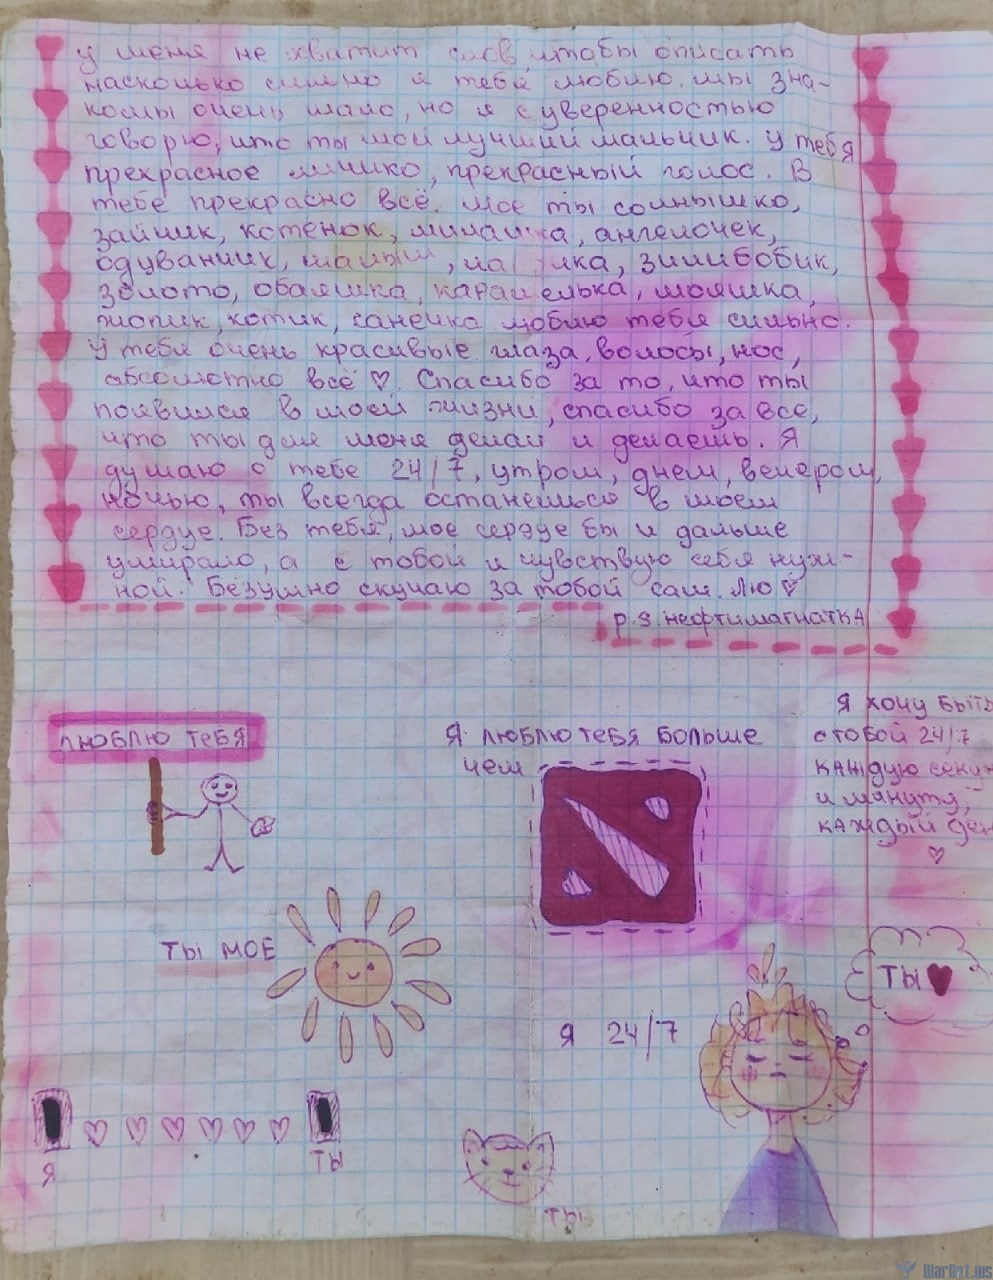 у меня не хватит слов чтобы описать
насколько сильно я тебя люблю. мы зна-
комы очень мало, но я с уверенностью
говорю, что ты мой лучший мальчик. у тебя
прекрасное личико, прекрасный голос. В
тебе прекрасно всё. мое ты солнышко,
зайчик, котенок, милашка, ангелочек,
одуванчик, малыш, зилибобик,
золото, обаяшка, карамелька, моряшка,
жопик, котик, санечка люблю тебя сильно.
У тебя очень красивые глаза, волосы, нос,
абсолютно всё ♡. Спасибо за то, что ты
появился в моей жизни, спасибо за все,
что ты для меня делал и делаешь. Я
думаю о тебе 24/7, утром, днем, вечером,
ночью, ты всегда останешься в моем
сердце. Без тебя, мое сердце бы и дальше
умирало, а с тобой я чувствую себя нуж-
ной. Безумно скучаю за тобой саш. Лю ♡
p.s. нефтимагнатка
Я хочу быть
с тобой 24/7
каждую секун
и минуту,
каждый ден
♡
люблю тебя
Я люблю тебя больше
чем
ты мое
ты ♥
я 24/7
Я
ты
ты
WarDat.ws